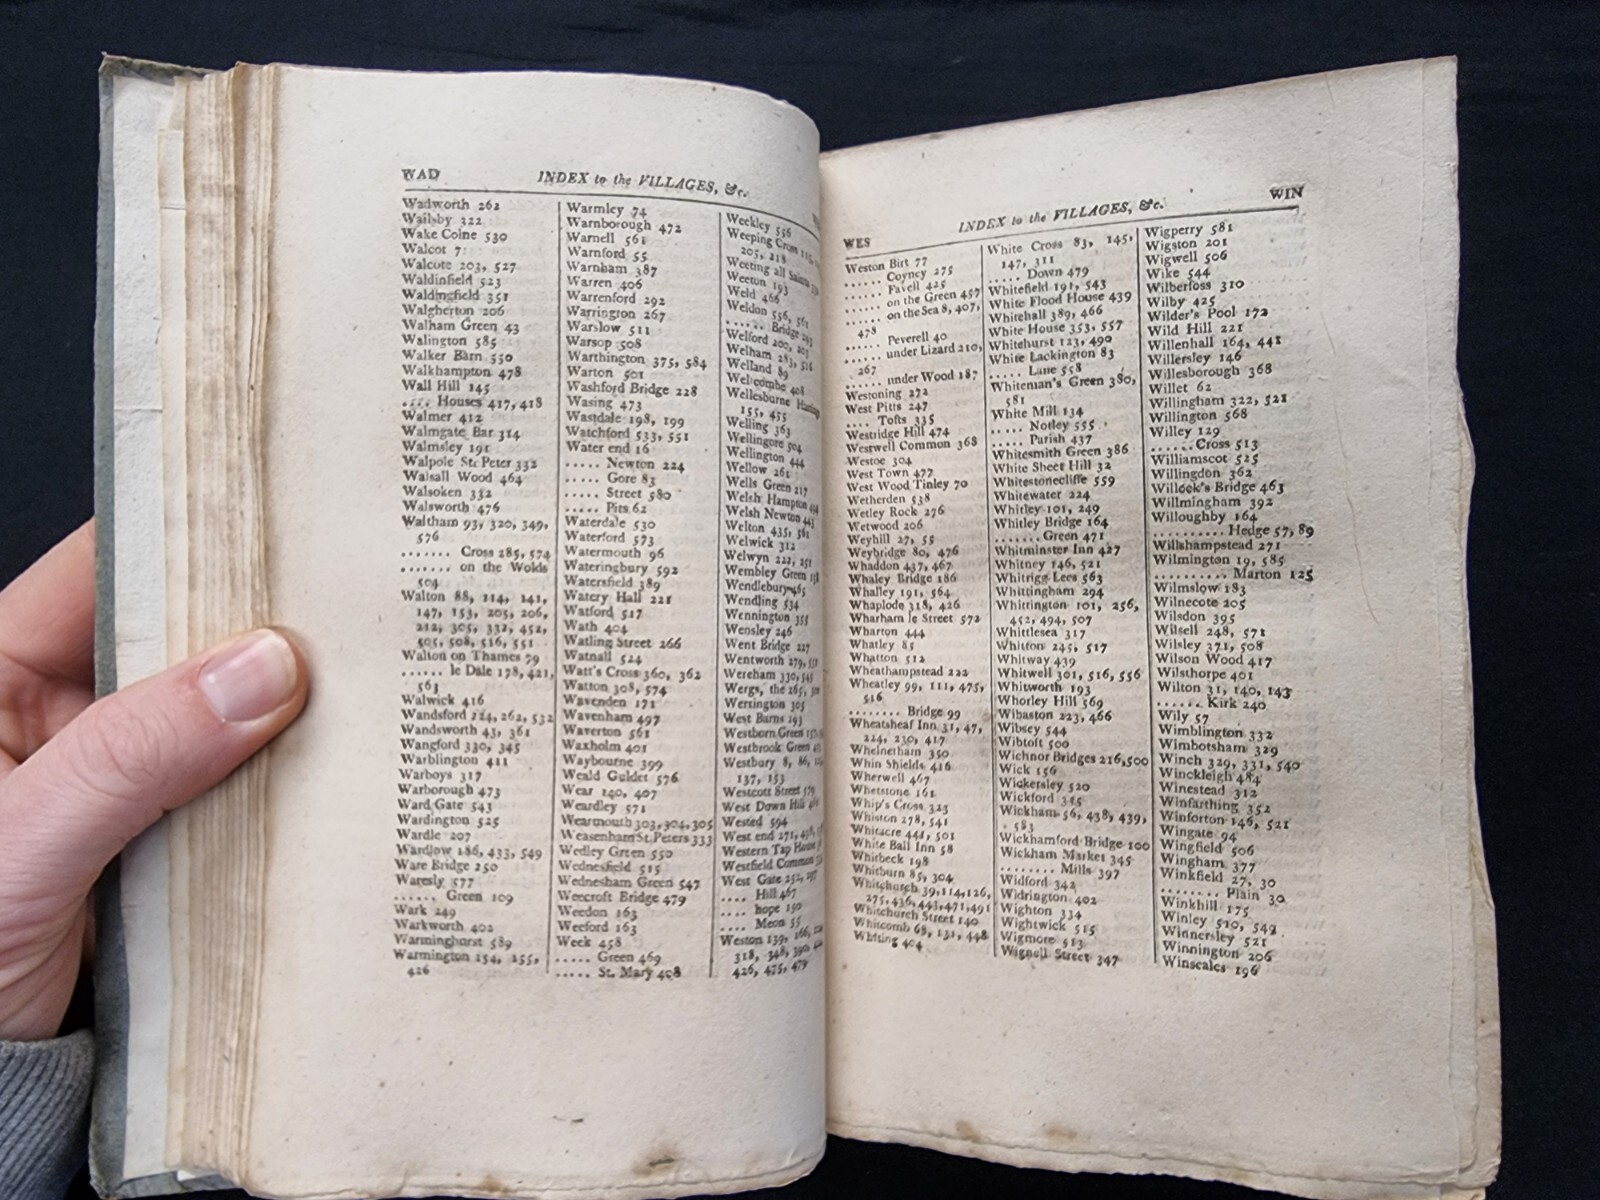 WAD
INDEX to the VILLAGES, &c.
Wadworth 262
Wailsby 322
Wake Colne 530
Walcot 7
Walcote 203, 527
Waldinfield 523
Waldingfield 351
Walgherton 206
Walham Green 43
Walington 585
Walker Barn 550
Walkhampton 478
Wall Hill 145
.... Houses 417, 418
Walmer 412
Walmgate Bar 314
Walmsley 191
Walpole St. Peter 332
Walsall Wood 464
Walsoken 332
Walsworth 476
Waltham 93, 320, 349,
576
....... Cross 285, 574
....... on the Wolds
504
Walton 88, 114, 141,
147, 153, 205, 206,
212, 305, 332, 452,
505, 508, 516, 551
Walton on Thames 79
...... le Dale 178, 421,
563
Walwick 416
Wandsford 224, 262, 532
Wandsworth 43, 361
Wangford 330, 345
Warblington 411
Warboys 317
Warborough 473
Ward Gate 543
Wardington 525
Wardle 207
Wardlow 186, 433, 549
Ware Bridge 250
Waresly 577
...... Green 109
Wark 249
Warkworth 402
Warminghurst 589
Warmington 154, 155,
426
Warmley 74
Warnborough 472
Warnell 561
Warnford 55
Warnham 387
Warren 406
Warrenford 292
Warrington 267
Warslow 511
Warsop 508
Warthington 375, 584
Warton 501
Washford Bridge 228
Wasing 473
Wastdale 198, 199
Watchford 533, 551
Water end 16
..... Newton 224
..... Gore 83
..... Street 580
..... Pits 62
Waterdale 530
Waterford 573
Watermouth 96
Wateringbury 592
Watersfield 389
Watery Hall 221
Watford 517
Wath 404
Watling Street 266
Watnall 524
Watt's Cross 360, 362
Watton 308, 574
Wavenden 171
Wavenham 497
Waverton 561
Waxholm 401
Waybourne 399
Weald Guldet 576
Wear 140, 407
Weardley 571
Wearmouth 303, 304, 305
Weasenham St. Peters 333
Wedley Green 550
Wednesfield 515
Wednesham Green 547
Weecroft Bridge 479
Weedon 163
Weeford 163
Week 458
..... Green 469
..... St. Mary 408
Weekley 556
Weeping Cross
205, 218
Weeting all Saints
Weeton 193
Weld 466
Weldon 556, 561
..... Bridge
Welford 200, 203
Welham 283, 516
Welland 89
Welcombe 408
Wellesburne
155, 455
Welling 363
Wellingore 504
Wellington 444
Wellow 261
Wells Green 217
Welsh Hampton
Welsh Newton 443
Welton 435, 561
Welwick 312
Welwyn 222, 251
Wembley Green
Wendlebury 465
Wendling 534
Wennington 355
Wensley 246
Went Bridge 227
Wentworth 279,
Wereham 330, 545
Wergs, the 265,
Werrington 305
West Barns 293
Westborn Green
Westbrook Green
Westbury 8, 86,
137, 153
Westcott Street 579
West Down Hill
Wested 594
West end 271,
Western Tap House
Westfield Common
West Gate 252,
.... Hill 467
.... hope 150
.... Meon 55
Weston 139, 166,
318, 348, 390,
426, 475, 479
WES
INDEX to the VILLAGES, &c.
WIN
Weston Birt 77
...... Coyncy 275
...... Favell 425
...... on the Green 457
...... on the Sea 8, 407,
478
...... Peverell 40
...... under Lizard 210,
267
...... under Wood 187
Westoning 272
West Pitts 247
.... Tofts 335
Westridge Hill 474
Westwell Common 368
Westoe 304
West Town 477
West Wood Tinley 70
Wetherden 538
Wetley Rock 276
Wetwood 206
Weyhill 27, 55
Weybridge 80, 476
Whaddon 437, 467
Whaley Bridge 186
Whalley 191, 564
Whaplode 318, 426
Wharham le Street 572
Wharton 444
Whatley 85
Whatton 512
Wheathampstead 222
Wheatley 99, 111, 475,
516
........ Bridge 99
Wheatsheaf Inn 31, 47,
224, 230, 417
Whelnetham 350
Whin Shields 416
Wherwell 467
Whetstone 161
Whip's Cross 323
Whiston 278, 541
Whitacre 441, 501
White Ball Inn 58
Whitbeck 198
Whitburn 85, 304
Whitchurch 39, 114, 126,
275, 436, 443, 471, 491
Whitchurch Street 140
Whitcomb 68, 131, 448
Whiting 404
White Cross 83, 145,
147, 311
..... Down 479
Whitefield 191, 543
White Flood House 439
Whitehall 389, 466
White House 353, 557
Whitehurst 123, 490
White Lackington 83
..... Lane 558
Whiteman's Green 380,
581
White Mill 134
..... Notley 555
..... Parish 437
Whitesmith Green 386
White Sheet Hill 32
Whitestonecliffe 559
Whitewater 224
Whitley 101, 249
Whitley Bridge 164
....... Green 471
Whitminster Inn 427
Whitney 146, 521
Whitrigg Lees 563
Whittingham 294
Whittington 101, 256,
452, 494, 507
Whittlesea 317
Whitton 245, 517
Whitway 439
Whitwell 301, 516, 556
Whitworth 193
Whorley Hill 569
Wibaston 223, 466
Wibsey 544
Wibtoft 500
Wichnor Bridges 216, 500
Wick 156
Wickersley 520
Wickford 325
Wickham 56, 438, 439,
583
Wickhamford Bridge 100
Wickham Market 345
........ Mills 397
Widford 342
Widrington 402
Wighton 334
Wightwick 515
Wigmore 513
Wignell Street 347
Wigperry 581
Wigston 201
Wigwell 506
Wike 544
Wilberfoss 310
Wilby 425
Wilder's Pool 172
Wild Hill 221
Willenhall 164, 441
Willersley 146
Willesborough 368
Willet 62
Willingham 322, 521
Willington 568
Willey 129
...... Cross 513
Williamscot 525
Willingdon 362
Willock's Bridge 463
Willmingham 392
Willoughby 164
.......... Hedge 57, 89
Willshampstead 271
Wilmington 19, 585
.......... Marton 125
Wilmslow 183
Wilnecote 205
Wilsdon 395
Wilsell 248, 571
Wilsley 371, 508
Wilson Wood 417
Wilsthorpe 401
Wilton 31, 140, 143
...... Kirk 240
Wily 57
Wimblington 332
Wimbotsham 329
Winch 329, 331, 540
Winckleigh 484
Winestead 312
Winfarthing 352
Winforton 146, 521
Wingate 94
Wingfield 506
Wingham 377
Winkfield 27, 30
........ Plain 30
Winkhill 175
Winley 510, 549
Winnersley 521
Winnington 206
Winscales 196